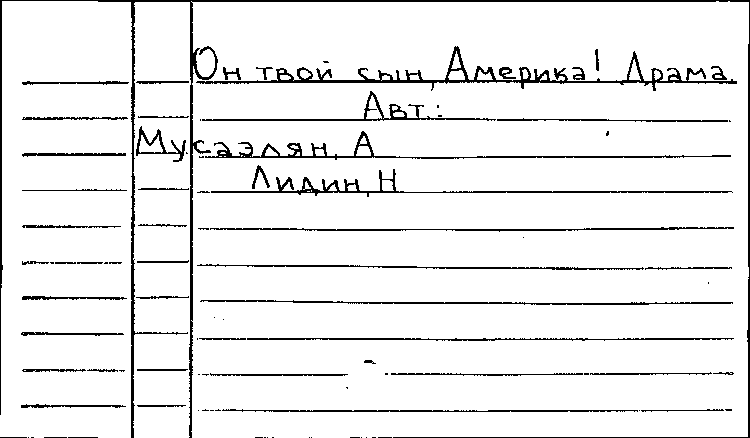 Он твой сын, Америка! Драма.
Авт.:
Мусаэлян, А
Лидин, Н